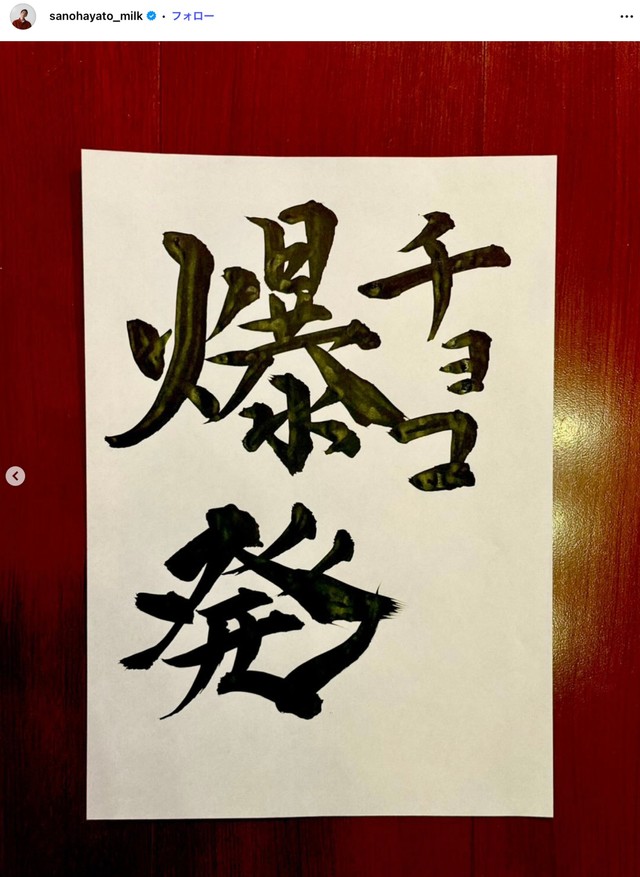 sanohayato_milk • フォロー
チョコ
爆発